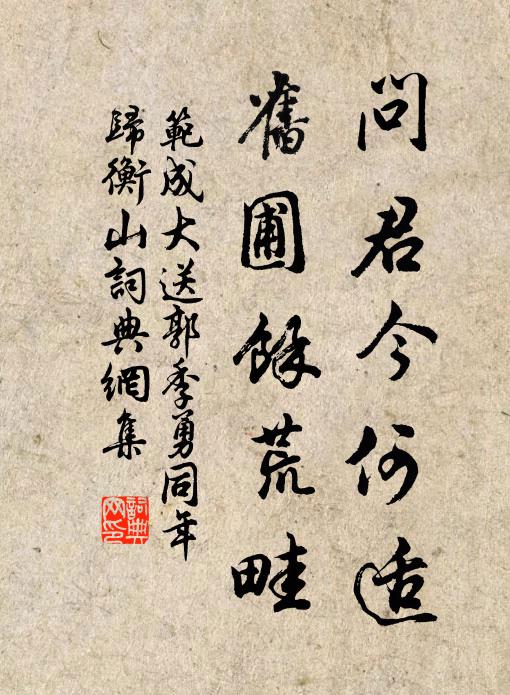 問君今何适
舊圃餘荒畦
範成大送郭季勇同年
歸衡山詞典網集
詞典
网印